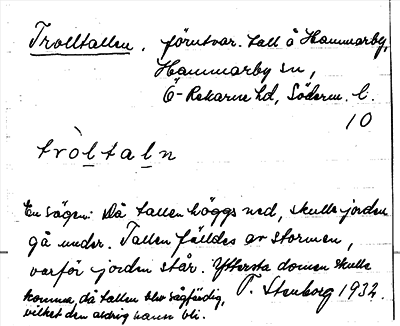 Trolltallen. förutvar. tall å Hammarby,
Hammarby sn,
Ö-Rekarne hd, Söderm. l.
10
tròltaln
En sägen: Då tallen höggs ned, skulle jorden
gå under. Tallen fälldes av stormen,
varför jorden står. Yttersta domen skulle
komma, då tallen blev sågfärdig,
vilket den aldrig hann bli.
T. Stenborg 1932.